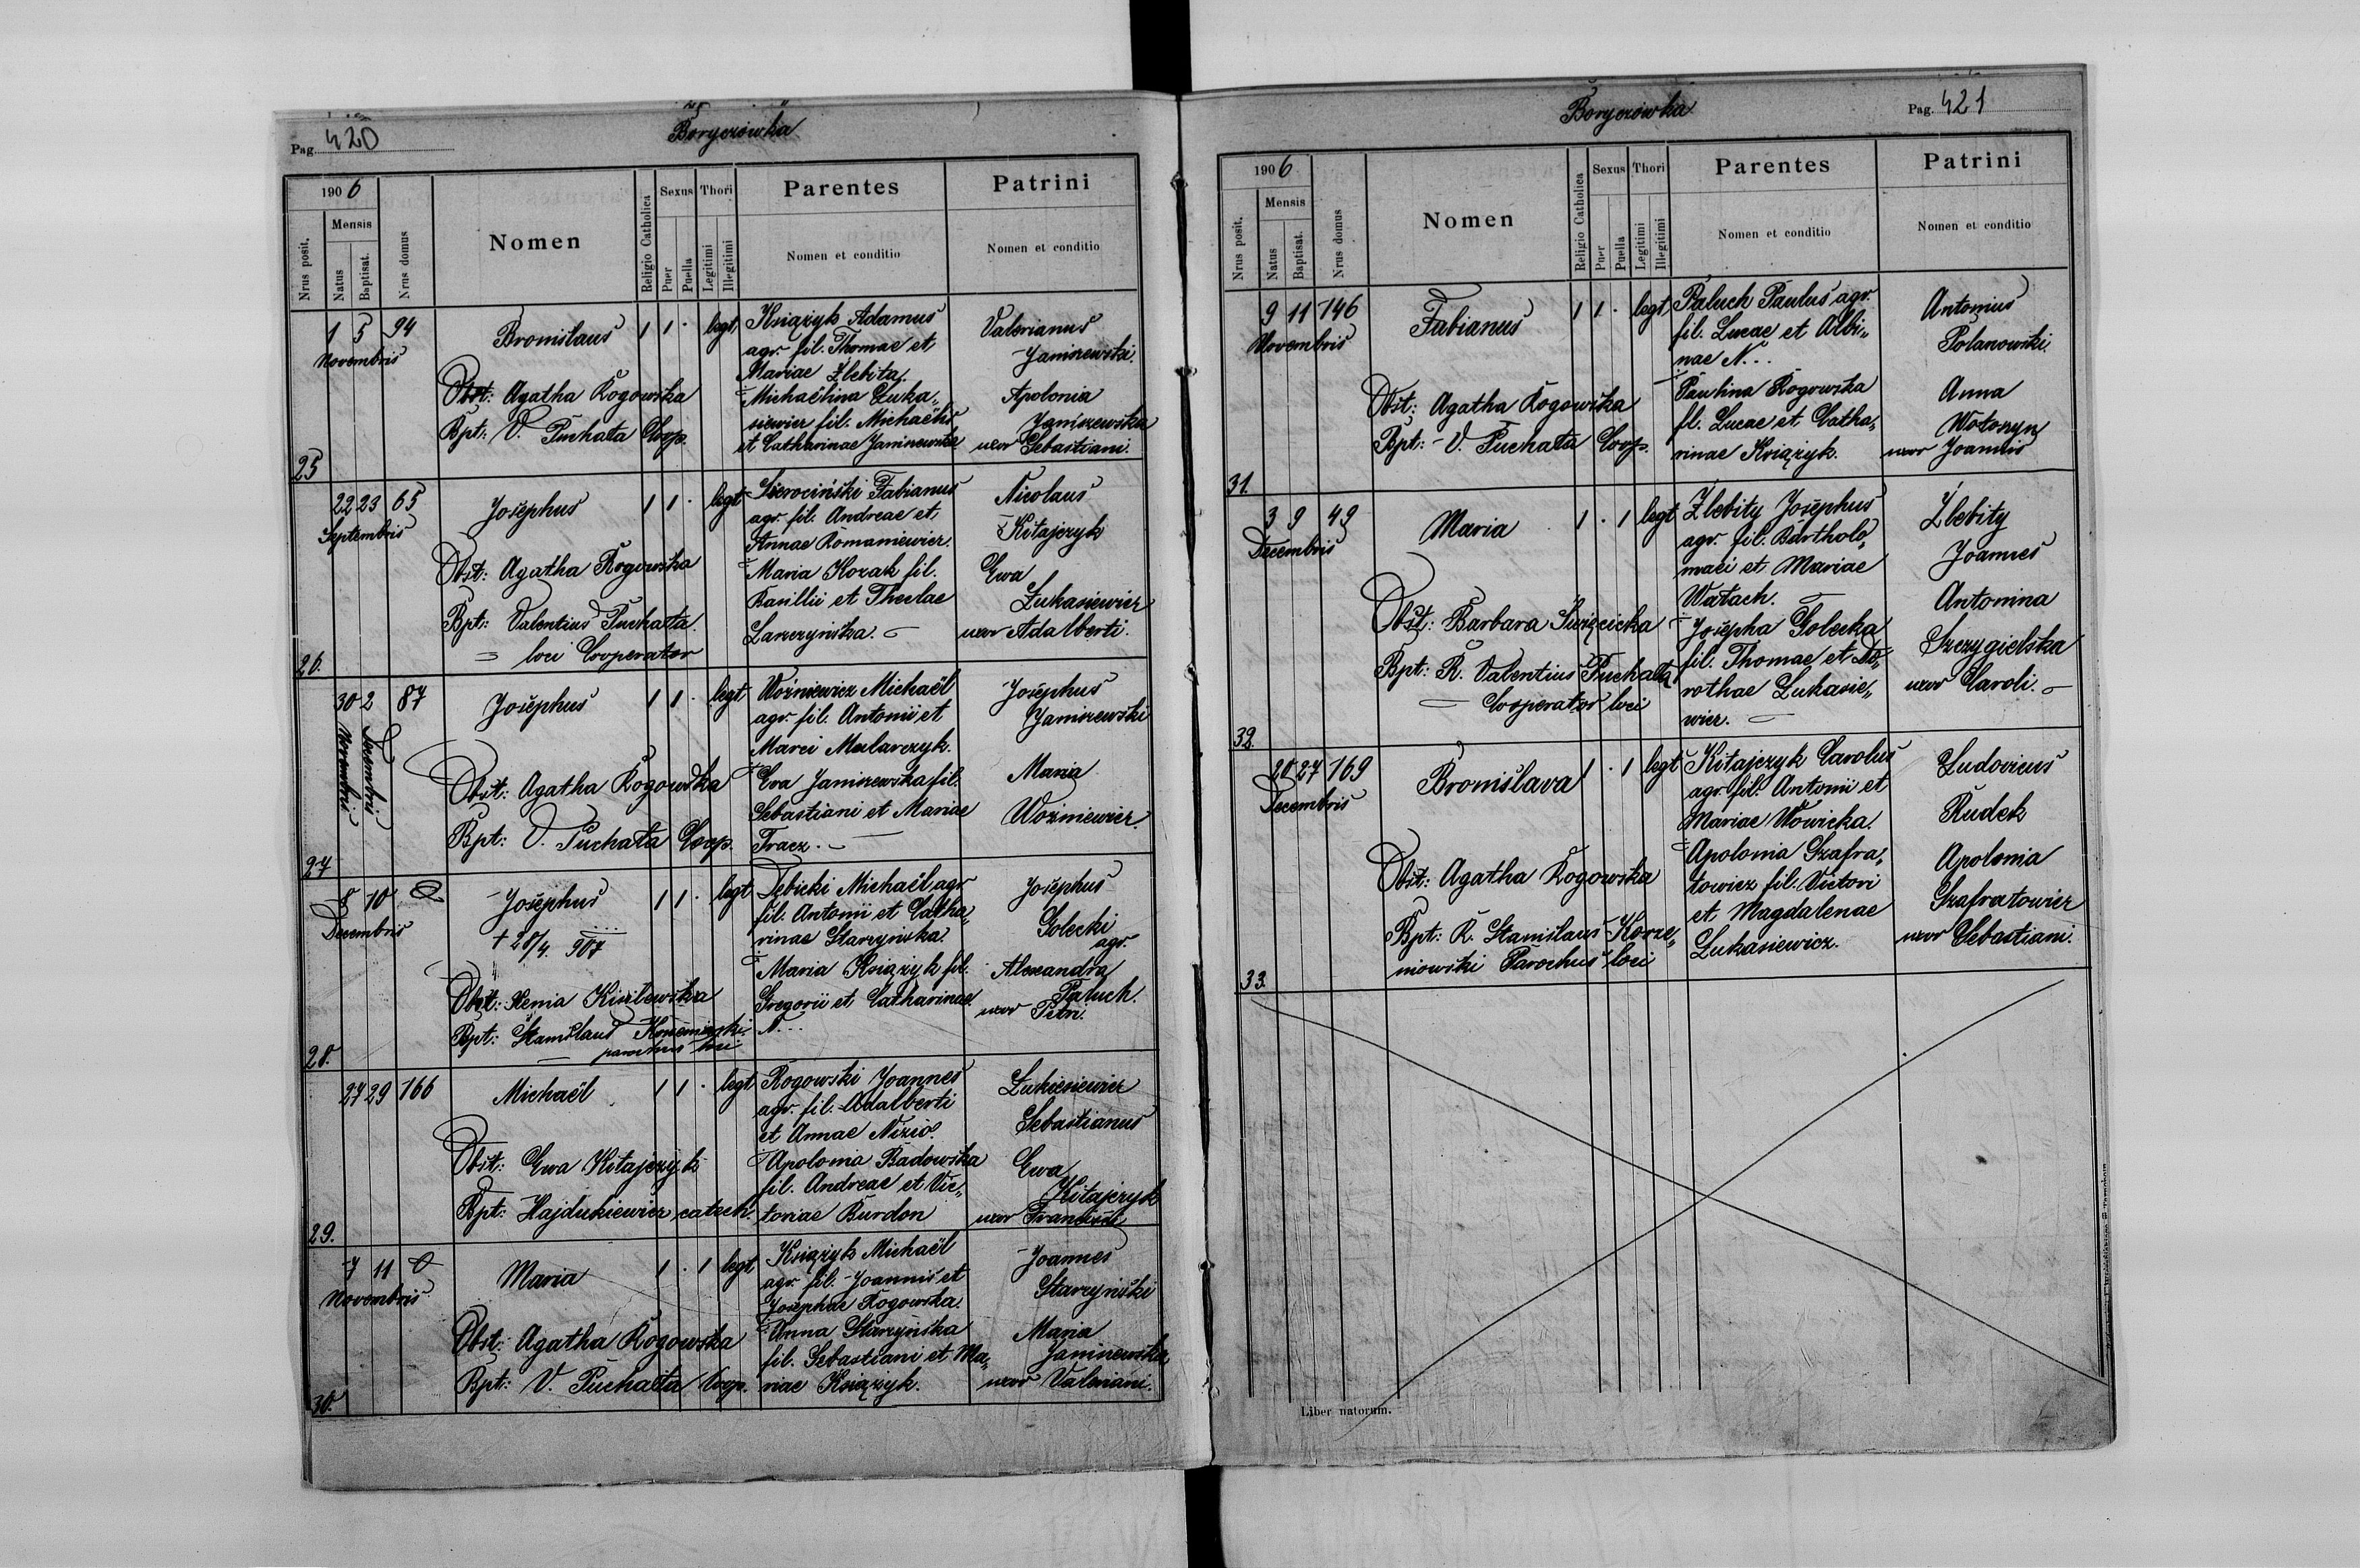 Pag. 420
Boryczówka
1906
Nrus posit.
Mensis
Natus
Baptisat.
Nrus domus
Nomen
Religio Catholica
Sexus
Puer
Puella
Thori
Legitimi
Illegitimi
Parentes
Nomen et conditio
Patrini
Nomen et conditio
25
1 5 94
Novembris
Bronislaus
Obst: Agatha Rogowska
Bpt: V. Puchata Coop.
1 1 · legt.
Książyk Adamus
agr. fil. Thomae et
Mariae Żlebita.
Michaëlina Łuka„
siewicz fil. Michaëlis
et Catharinae Janiszewska
Valerianus
Janiszewski.
Apolonia
Janiszewska
uxor Sebastiani.
26.
22 23 65
Septembris
Josephus
Obst: Agatha Rogowska
Bpt: Valentius Puchata.
= loci Cooperator
1 1 · legt
Sierociński Fabianus
agr. fil. Andreae et
Annae Romaniewicz.
Maria Kozak fil.
Basillii et Theclae
Larczyńska. –
Nicolaus
Kitajczyk
Ewa
Łukasiewicz
uxor Adalberti.
27
30 2 87
Novembris Decembris
Josephus
Obst: Agatha Rogowska
Bpt: V. Puchata Coop.
1 1 · legt.
Woźniewicz Michaël
agr. fil. Antonii et
Marci Mularczyk.
Eva Janiszewska fil.
Sebastiani et Mariae
Tracz. –
Josephus
Janiszewski
Maria
Woźniewicz.
28.
8 10
Decembris
Josephus
+ 28/4. 907
Obst: Xenia Kisilewska
Bpt: Stanislaus Korzeniowski
parochus loci
1 1 · legt
Debicki Michaël agr
fil. Antonii et Catha„
rinae Starzyńska.
Maria Książyk fil.
Gregorii et Catharinae
N...
Josephus
Golecki
agr.
Alexandra
Paluch.
uxor Petri.
29.
27 29 166
Michaël
Obst: Ewa Kitajczyk
Bpt: Hajdukiewicz catech.
1 1 · legt
Rogowski Joannes
agr. fil. Adalberti
et Annae Nizio.
Apolonia Badowska
fil. Andreae et Vic„
toriae Burdon
Łukiesiewicz
Sebastianus
Ewa
Kitajczyk
uxor Francisci
30.
7 11
Novembris
Maria
Obst: Agatha Rogowska
Bpt: V. Puchata Coop.
1 · 1 legt
Książyk Michaël
agr. fil. Joannis et
Josephae Rogowska.
Anna Starzyńska
fil. Sebastiani et Ma„
riae Książyk.
Joannes
Starzyński
Maria
Janiszewska
uxor Valeriani.
Boryczówka
Pag. 421
1906
Nrus posit.
Mensis
Natus
Baptisat.
Nrus domus
Nomen
Religio Catholica
Sexus
Puer
Puella
Thori
Legitimi
Illegitimi
Parentes
Nomen et conditio
Patrini
Nomen et conditio
31.
9 11 146
Novembris
Fabianus
Obst: Agatha Rogowska
Bpt: V. Puchata Coop.
1 1 · legt
Paluch Paulus agr.
fil. Lucae et Albi„
nae N...
Paulina Rogowska
fl. Lucae et Catha„
rinae Książyk.
Antonius
Polanowski.
Anna
Wołoszyn
uxor Joannis
32.
3 9 49
Decembris
Maria
Obst: Barbara Święcicka
Bpt: R. Valentius Puchata
– Cooperator loci
1 · 1 legt
Żlebity Josephus
agr. fil. Bartholo„
maei et Mariae
Watach.
Josepha Golecka
fil. Thomae et Do„
rothae Łukasie„
wicz. –
Żlebity
Joannes
Antonina
Szczygielska
uxor Caroli. –
33.
20 27 169
Decembris
Bronislava
Obst: Agatha Rogowska
Bpt: R. Stanislaus Korze„
niowski Parochus loci
1 · 1 legt
Kitajczyk Carolus
agr. fil. Antonii et
Mariae Wowicka.
Apolonia Szafra„
towicz fil. Victori
et Magdalenae
Łukasiewicz.
Ludovicus
Rudek
Apolonia
Szafratowicz
uxor Sebastiani.
Liber natorum.